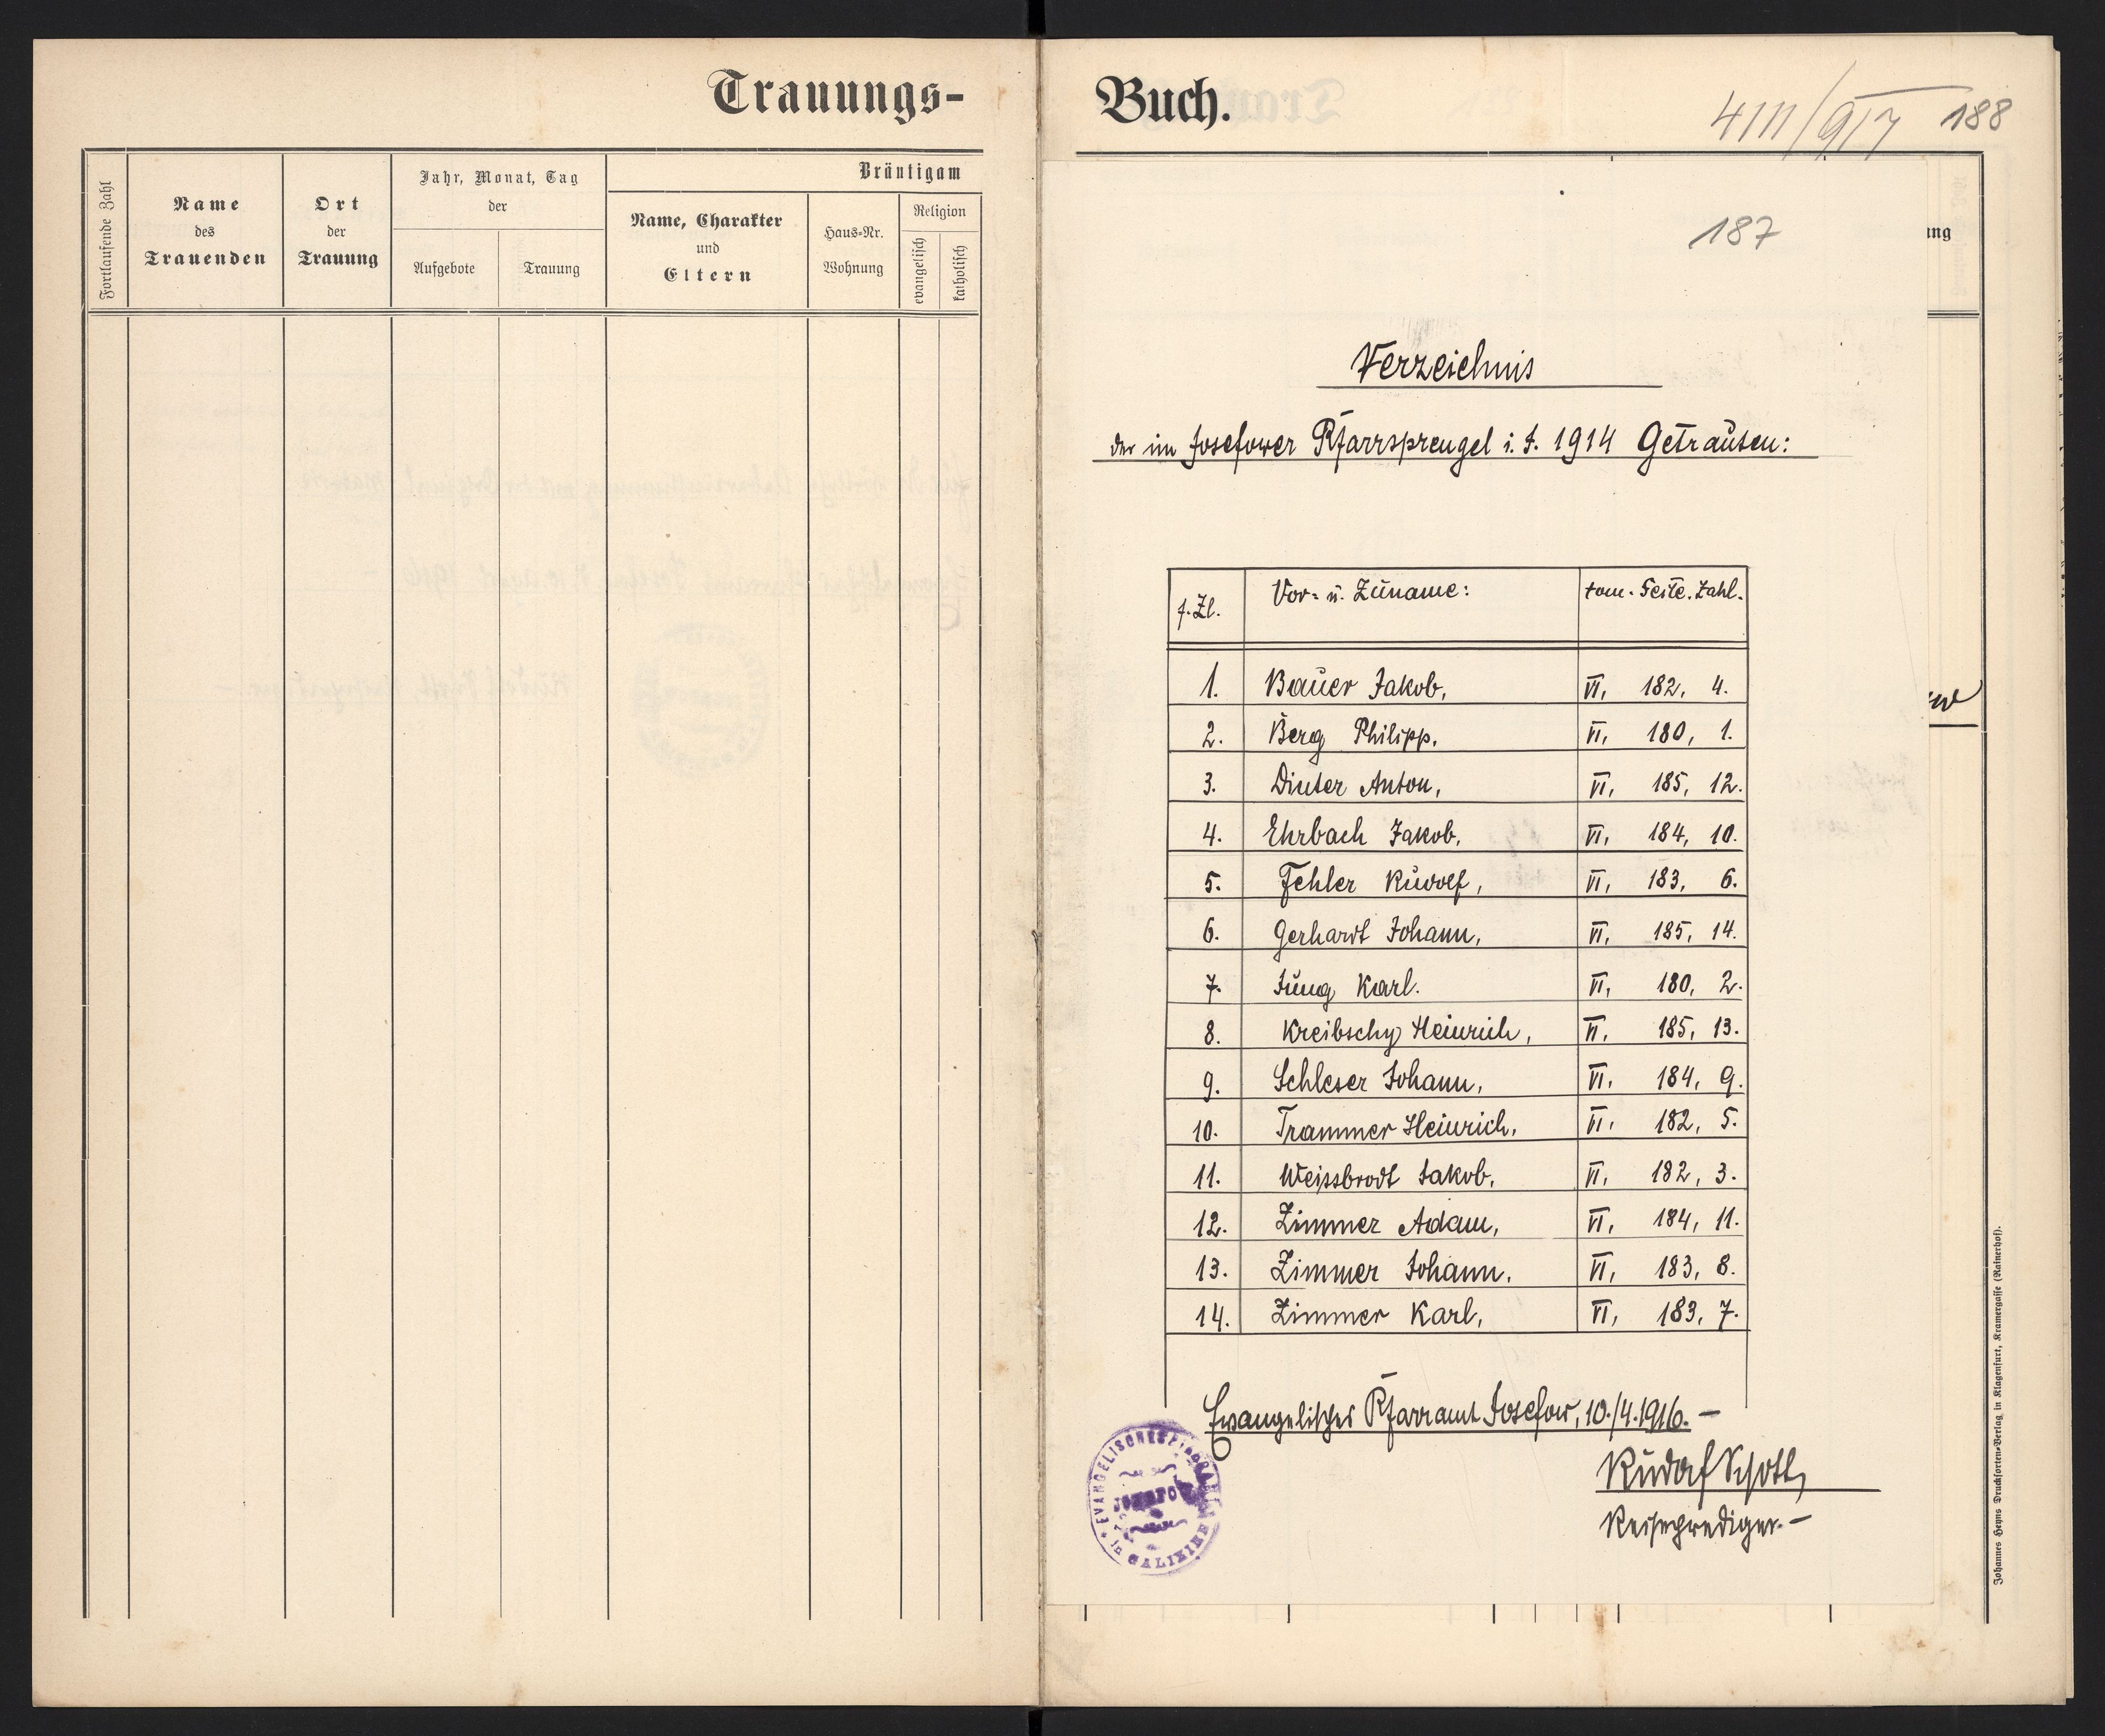 Trauungs-
Fortlaufende Zahl
Name
des
Trauenden
Ort
der
Trauung
Jahr, Monat, Tag
der
Aufgebote
Trauung
Bräutigam
Name, Charakter
und
Eltern
Haus-Nr.
Wohnung
Religion
evangelisch
katholisch
Buch.
4111/917 188
187
Verzeichnis
der im Josefower Pfarrsprengel i. J. 1914 Getrauten:
f. Zl. Vor- u. Zuname: tom. Seite. Zahl.
1. Bauer Jakob, VI, 182, 4.
2. Berg Philipp, VI, 180, 1.
3. Dinter Anton, VI, 185, 12.
4. Ehrbach Jakob, VI, 184, 10.
5. Fehler Rudolf, VI, 183, 6.
6. Gerhardt Johann, VI, 185, 14.
7. Jung Karl. VI, 180, 2.
8. Kreibschy Heinrich, VI, 185, 13.
9. Schleser Johann, VI, 184, 9.
10. Trammer Heinrich, VI, 182, 5.
11. Weissbrodt Jakob, VI, 182, 3.
12. Zimmer Adam, VI, 184, 11.
13. Zimmer Johann, VI, 183, 8.
14. Zimmer Karl, VI, 183, 7.
Evangelisches Pfarramt Josefow, 10./4. 1916. –
Rudolf Schott,
Reiseprediger. –
EVANGELISCHES PFARRAMT
JOSEFOW
in GALIZIEN
ng
ow
Johannes Heyns Drucksorten-Verlag in Klagenfurt, Kramergasse (Rainerhof).